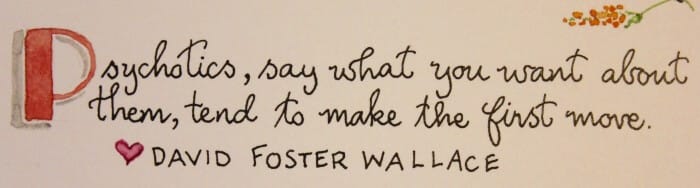 Psychotics, say what you want about
them, tend to make the first move.
DAVID FOSTER WALLACE